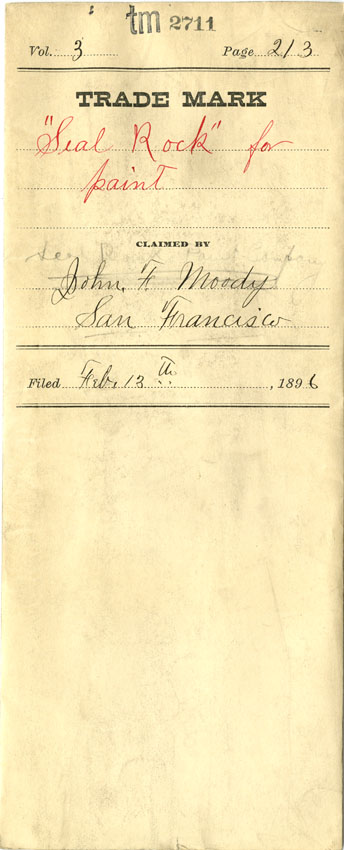 tm 2711
Vol. 3 Page 213
TRADE MARK
"Seal Rock" for
paint
CLAIMED BY
John. F. Moody
San Francisco
Filed Feb. 13th, 1896